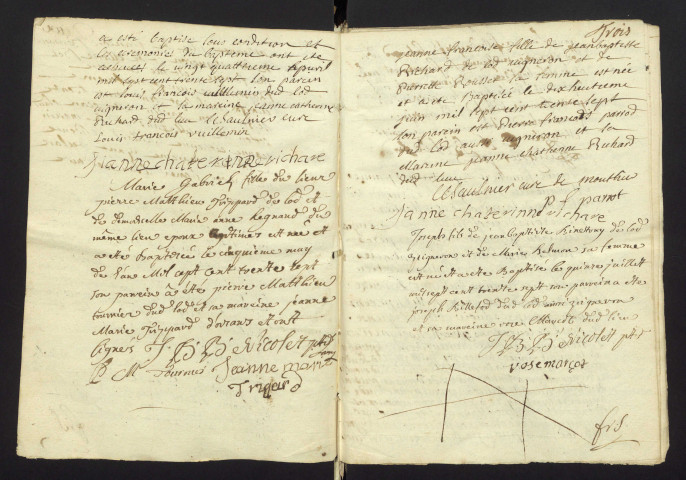 a esté baptisé sous condition et
les ceremonies du bapteme ont été
le vingt quattrieme
mil sept cent trente sept son parein
est louis françois vuillemin dud lod
vigneron et la mareine jeanne catherine
Richard dud lieu LeSaulnier curé
Louis francois vuillemin
Jianne chaterinne richare
Marie Gabriel fille du sieur
pierre Matthieu du lod et
de demoiselle Marie anne Regnaud du
même lieu epoux legitimes est née et
a été baptisée le cinquième may
de l'an Mil cept cent trente cept
son parrein a été pierre Matthieu
tournier dud lod et sa mareine jeanne
Marie d'ornans
signes J B Nicolet ptre
P M Tournier Jeanne marie
Trigard
Trois
jeanne francoise fille de jeanbaptiste
Richard de lod vigneron et de
pierrette Rousset sa femme est née
et a esté Baptisée le dixhuitieme
juin mil sept cent trente sept
son parein est pierre françois parrod
dud lod aussy vigneron et sa
Mareine jeanne Catherine Richard
dud lieu
LeSaulnier curé de mouthie
p f parrot
Janne chaterinne richare
Joseph fils de jean baptiste du lod
vigneron et de Marie sa femme
est né et a été Baptisé le juillet
mil sept cent trente sept son parrein a été
joseph dud lod aussi vigneron
et sa mareine rose Marcot dud lieu
J B Nicolet ptre
rose marcot